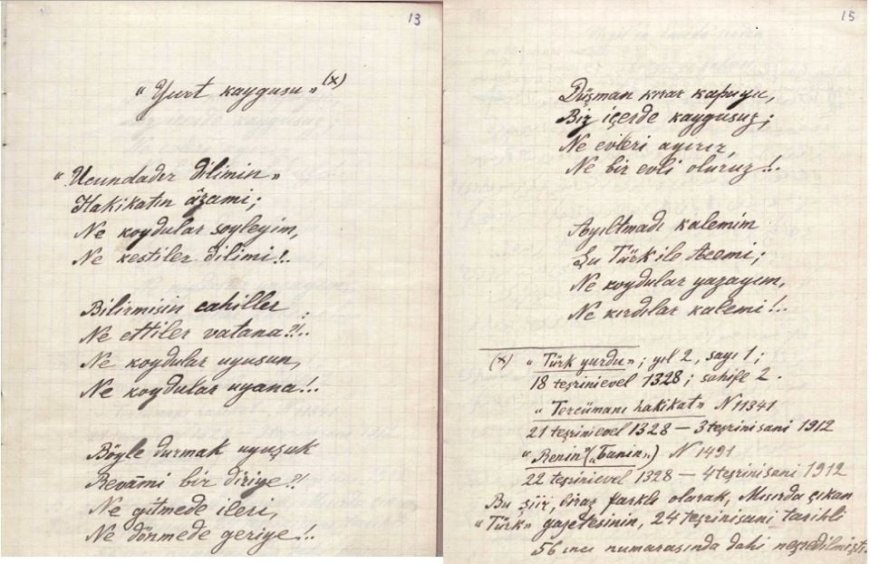 13
"Yurt kaygusu" (x)
"Ucundadır dilimin"
Hakikatın âzami;
Ne koydular soyleyim,
Ne kestiler dilimi!..
Bilirmisin cahiller
Ne ettiler vatana?!..
Ne koydular uyusun,
Ne koydular uyana!..
Böyle durmak uyuşuk
Revâmi bir diriye?!
Ne gitmede ileri,
Ne dönmede geriye!..
15
Düşman kırar kapuyu,
Biz içerde kaygusuz;
Ne evleri ayırız,
Ne bir evli oluruz!..
Ayıltmadı kalemim
Şu Türk ile Acemi;
Ne koydular yazayım,
Ne kırdılar kalemi!..
(x) "Türk yurdu"; yıl 2, sayı 1;
18 teşrinievel 1328; sahife 2.
"Tercümanı hakikat" N 11341
21 teşrinievel 1328 — 3 teşrinisani 1912
N 1491
22 teşrinievel 1328 — 4 teşrinisani 1912
Bu şiir, biraz farklı olarak, Mısırda çıkan
"Türk" gazetesinin, 24 teşrinisani tarihli
56 ıncı numarasında dahi neşredilmişti.